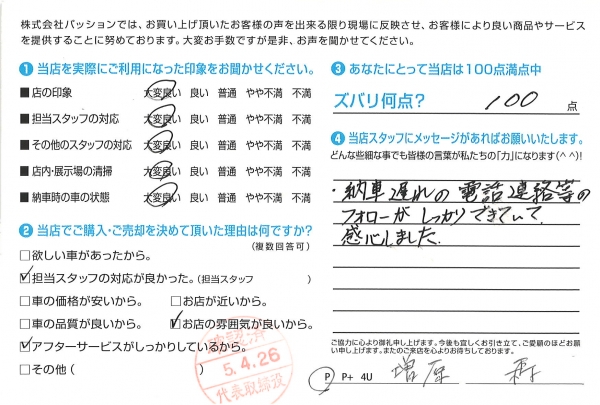 株式会社パッションでは、お買い上げ頂いたお客様の声を出来る限り現場に反映させ、お客様により良い商品やサービス
を提供することに努めております。大変お手数ですが是非、お声を聞かせてください。
❶ 当店を実際にご利用になった印象をお聞かせください。
■ 店の印象 大変良い 良い 普通 やや不満 不満
■ 担当スタッフの対応 大変良い 良い 普通 やや不満 不満
■ その他のスタッフの対応 大変良い 良い 普通 やや不満 不満
■ 店内・展示場の清掃 大変良い 良い 普通 やや不満 不満
■ 納車時の車の状態 大変良い 良い 普通 やや不満 不満
❷ 当店でご購入・ご売却を決めて頂いた理由は何ですか?
(複数回答可)
□欲しい車があったから。
☑担当スタッフの対応が良かった。(担当スタッフ )
□車の価格が安いから。 □お店が近いから。
□車の品質が良いから。 ☑お店の雰囲気が良いから。
☑アフターサービスがしっかりしているから。
□その他( )
確認済
5.4.26
代表取締役
❸ あなたにとって当店は100点満点中
ズバリ何点? 100 点
❹ 当店スタッフにメッセージがあればお願いいたします。
どんな些細な事でも皆様の言葉が私たちの「力」になります(^^)!
・納車遅れの電話連絡等の
フォローがしっかりできていて、
感心しました。
ご協力に心より御礼申し上げます。今後も宜しくお引き立て、ご愛顧のほどお願
い申し上げます。またのご来店を心よりお待ちしております。
P P+ 4U 増原